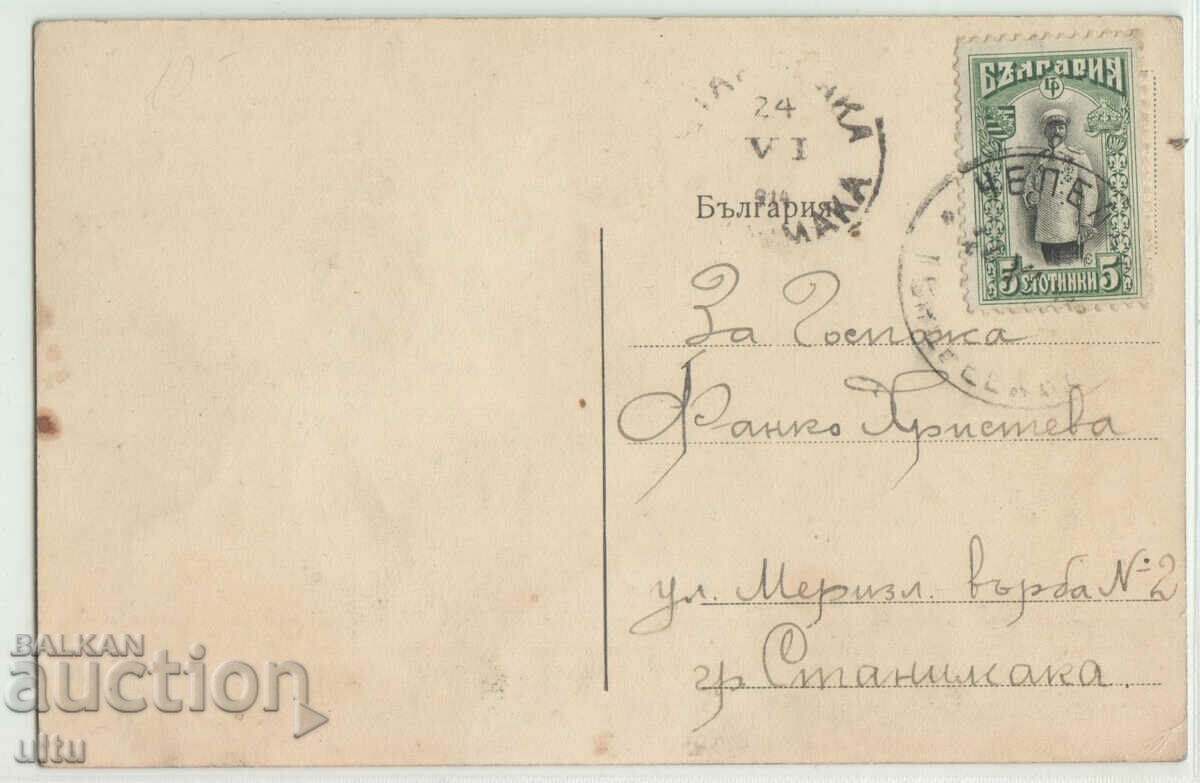 24
VI
България
БЪЛГАРИЯ
5 СТОТИНКИ 5
ЧЕПЕЛ
За Госпожа
Фанко Христева
ул. Меризл. върба № 2
гр Станимака.
BALKAN
auction
ultu